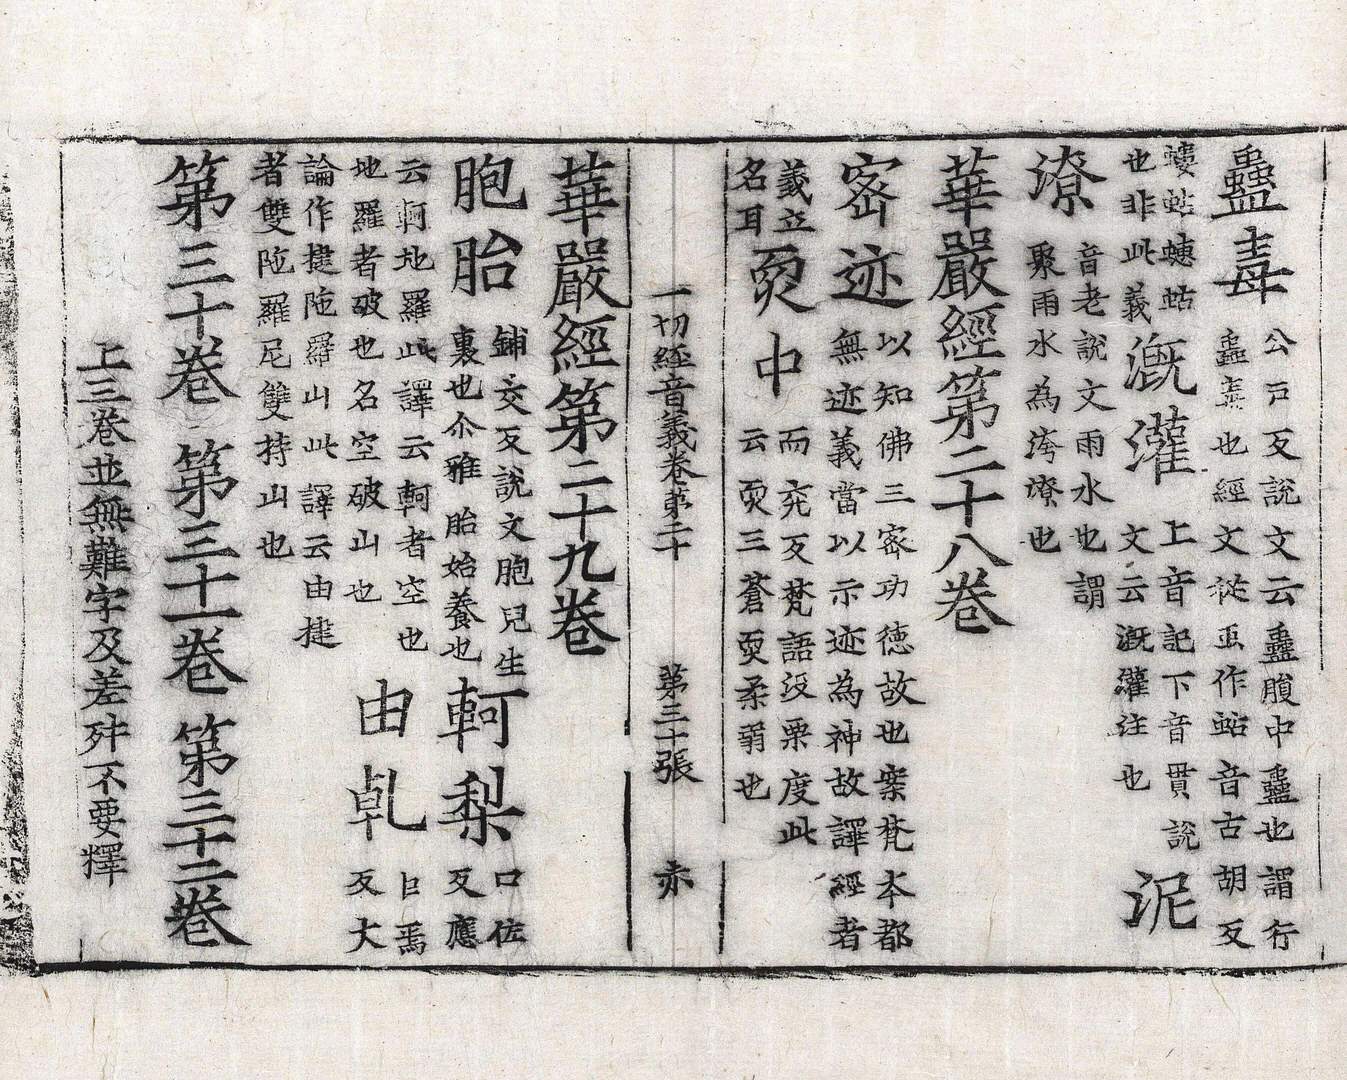 蠱毒
公戶反說文云蠱腹中蠱也謂行
蠱毒也經文從䖝作蛄音古胡反
螻蛄蟪蛄
也非此義
溉灌
上音記下音貫說
文云溉灌注也
泥
潦
音老說文雨水也謂
聚雨水為洿潦也
華嚴經第二十八卷
密迹
以知佛三密功德故也案梵本都
無迹義當以示迹為神故譯經者
義立
名耳
耎中
而兖反梵語沒栗度此
云耎三蒼耎柔弱也
一切經音義卷第二十 第三十張 赤
華嚴經第二十九卷
胞胎
鋪交反說文胞兒生
裏也尒雅胎始養也
軻梨
口佐
反應
云軻地羅此譯云軻者空也
地羅者破也名空破山也
由乹
巨焉
反大
論作揵陁羅山此譯云由揵
者雙陁羅尼雙持山也
第三十卷 第三十一卷 第三十二卷
上三卷並無難字及差舛不要釋